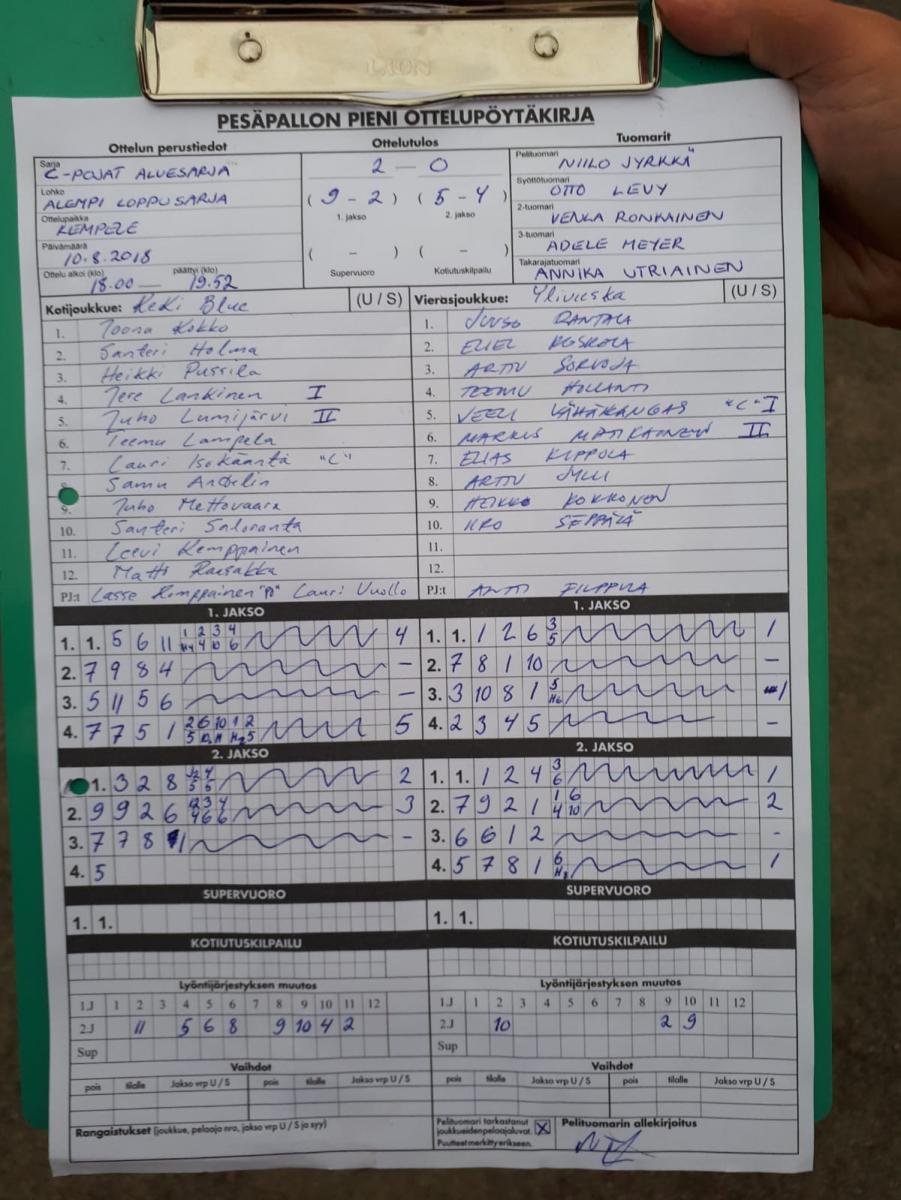 LION
PESÄPALLON PIENI OTTELUPÖYTÄKIRJA
Ottelun perustiedot
Sarja
C-POJAT ALUESARJA
Lohko
ALEMPI LOPPUSARJA
Ottelupaikka
KEMPELE
Päivämäärä
10.8.2018
Ottelu alkoi (klo) päättyi (klo)
18.00 — 19.52
Ottelutulos
2 – 0
( 9 - 2 ) ( 5 - 4 )
1. jakso 2. jakso
( - ) ( - )
Supervuoro Kotiutuskilpailu
Tuomarit
Pelituomari
NIILO JYRKKÄ
Syöttötuomari
OTTO LEVY
2-tuomari
VENLA RONKAINEN
3-tuomari
ADELE MEYER
Takarajatuomari
ANNIKA UTRIAINEN
Kotijoukkue: KeKi Blue (U / S)
1. Joona Kokko
2. Santeri Holma
3. Heikki Pussila
4. Jere Lankinen I
5. Juho Lumijärvi II
6. Teemu Lampela
7. Lauri Isokääntä "C"
8. Samu
9. Juho Mettovaara
10. Santeri Saloranta
11. Leevi Kemppainen
12. Matti
PJ:t Lasse Lauri Vuollo
Vierasjoukkue: Ylivieska (U / S)
1. JUUSO RANTALA
2. ELIEL KOSKELA
3. ARTTU SORVOJA
4. TEEMU HOLLANTI
5. VEELI VÄHÄKANGAS "C" I
6. MARKUS MATIKAINEN II
7. ELIAS KIPPOLA
8. ARTTU
9. HEIKKI KOKKONEN
10. IIRO SEPPÄLÄ
11.
12.
PJ:t ANTTI FILPPULA
1. JAKSO
1. 1. 5 6 11 1 2 3 4 4
4 10 6
2. 7 9 8 4 –
3. 5 11 5 6 –
4. 7 7 5 1 2 6 10 1 2 5
1. JAKSO
1. 1. 1 2 6 3 1
5
2. 7 8 1 10 –
3. 3 10 8 1 5 1
4. 2 3 4 5 –
2. JAKSO
1. 3 2 8 2
2. 9 9 2 6 3
3. 7 7 8 1 –
4. 5
2. JAKSO
1. 1. 1 2 4 3 1
6
2. 7 9 2 1 1 6 2
4 10
3. 6 6 1 2 -
4. 5 7 8 1 6 1
SUPERVUORO
1. 1.
SUPERVUORO
1. 1.
KOTIUTUSKILPAILU
KOTIUTUSKILPAILU
Lyöntijärjestyksen muutos
1J 1 2 3 4 5 6 7 8 9 10 11 12
2J 11 5 6 8 9 10 4 2
Sup
Lyöntijärjestyksen muutos
1J 1 2 3 4 5 6 7 8 9 10 11 12
2J 10 2 9
Sup
Vaihdot
pois tilalle Jakso vrp U / S pois tilalle Jakso vrp U / S
Vaihdot
pois tilalle Jakso vrp U / S pois tilalle Jakso vrp U / S
Rangaistukset (joukkue, pelaaja nro, jakso vrp U / S ja syy)
Pelituomari tarkastanut
joukkueiden pelaajaluvat. X
Puutteet merkitty erikseen.
Pelituomarin allekirjoitus